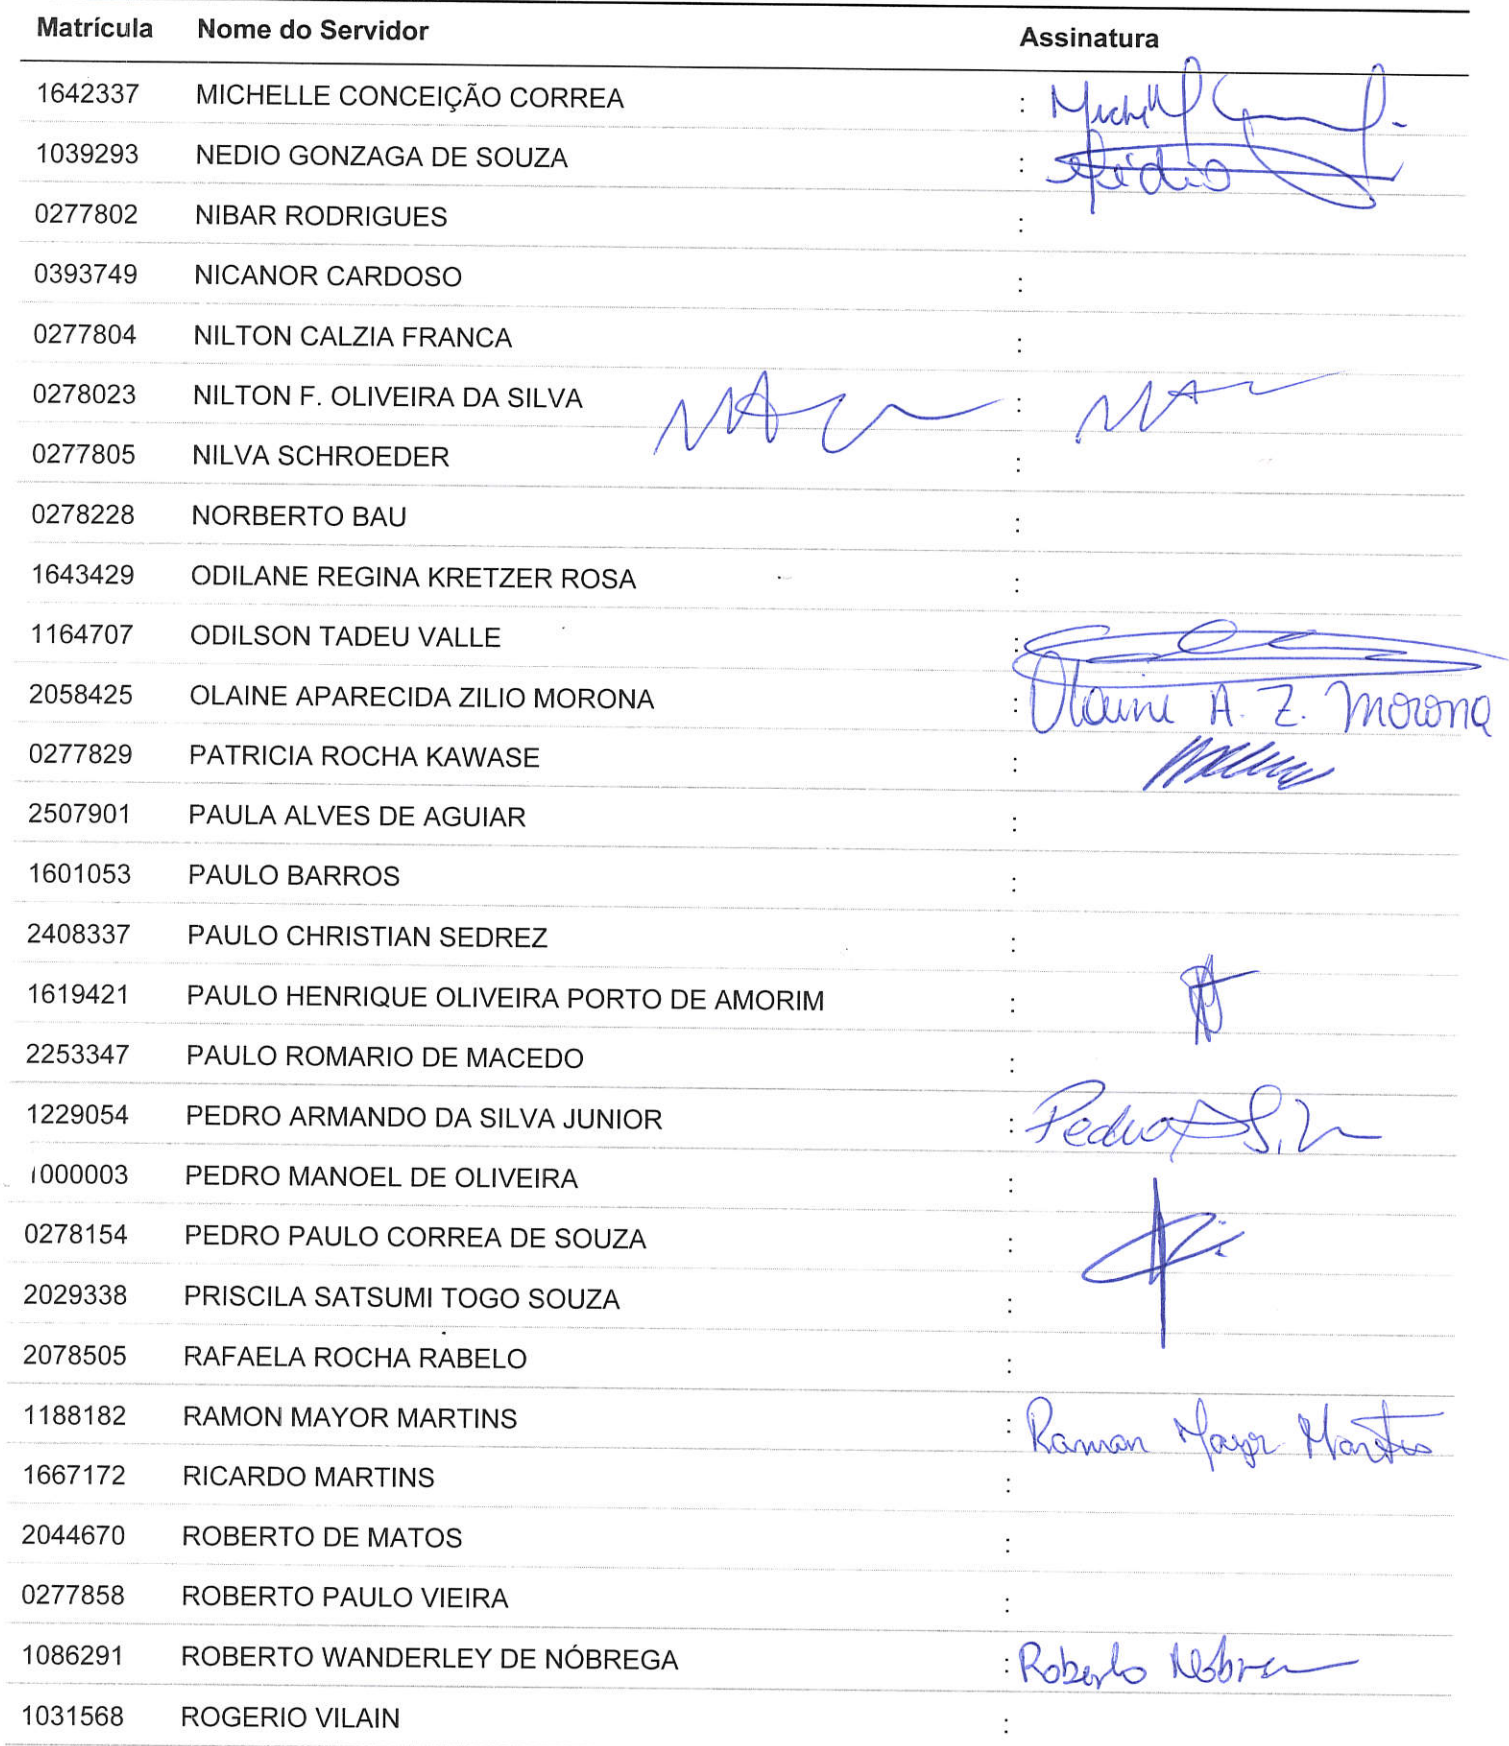 Matrícula Nome do Servidor Assinatura
1642337 MICHELLE CONCEIÇÃO CORREA : Michell
1039293 NEDIO GONZAGA DE SOUZA : Nédio
0277802 NIBAR RODRIGUES :
0393749 NICANOR CARDOSO :
0277804 NILTON CALZIA FRANCA :
0278023 NILTON F. OLIVEIRA DA SILVA :
0277805 NILVA SCHROEDER :
0278228 NORBERTO BAU :
1643429 ODILANE REGINA KRETZER ROSA :
1164707 ODILSON TADEU VALLE :
2058425 OLAINE APARECIDA ZILIO MORONA : Olaine A. Z. Morona
0277829 PATRICIA ROCHA KAWASE :
2507901 PAULA ALVES DE AGUIAR :
1601053 PAULO BARROS :
2408337 PAULO CHRISTIAN SEDREZ :
1619421 PAULO HENRIQUE OLIVEIRA PORTO DE AMORIM :
2253347 PAULO ROMARIO DE MACEDO :
1229054 PEDRO ARMANDO DA SILVA JUNIOR : Pedro A S.
1000003 PEDRO MANOEL DE OLIVEIRA :
0278154 PEDRO PAULO CORREA DE SOUZA :
2029338 PRISCILA SATSUMI TOGO SOUZA :
2078505 RAFAELA ROCHA RABELO :
1188182 RAMON MAYOR MARTINS : Ramon Mayor Martins
1667172 RICARDO MARTINS :
2044670 ROBERTO DE MATOS :
0277858 ROBERTO PAULO VIEIRA :
1086291 ROBERTO WANDERLEY DE NÓBREGA : Roberto Nóbrega
1031568 ROGERIO VILAIN :